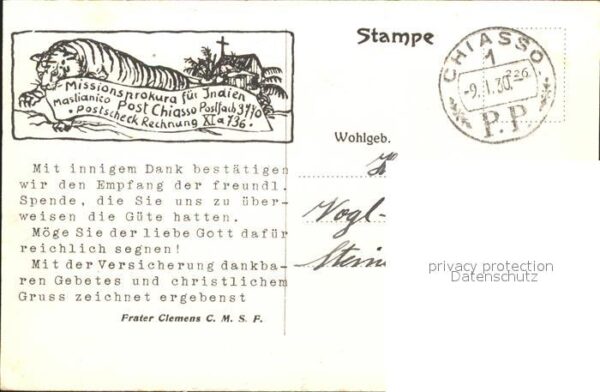 Missionsprokura für Indien
Maslianico Post Chiasso Postfach 3770
Postscheck Rechnung XI a 736.
Stampe
CHIASSO
1
-9. 1. 30
P.P.
Wohlgeb.
Vogl-
Stein
Mit innigem Dank bestätigen
wir den Empfang der freundl.
Spende, die Sie uns zu über-
weisen die Güte hatten.
Möge Sie der liebe Gott dafür
reichlich segnen!
Mit der Versicherung dankba-
ren Gebetes und christlichem
Gruss zeichnet ergebenst
Frater Clemens C. M. S. F.
privacy protection
Datenschutz